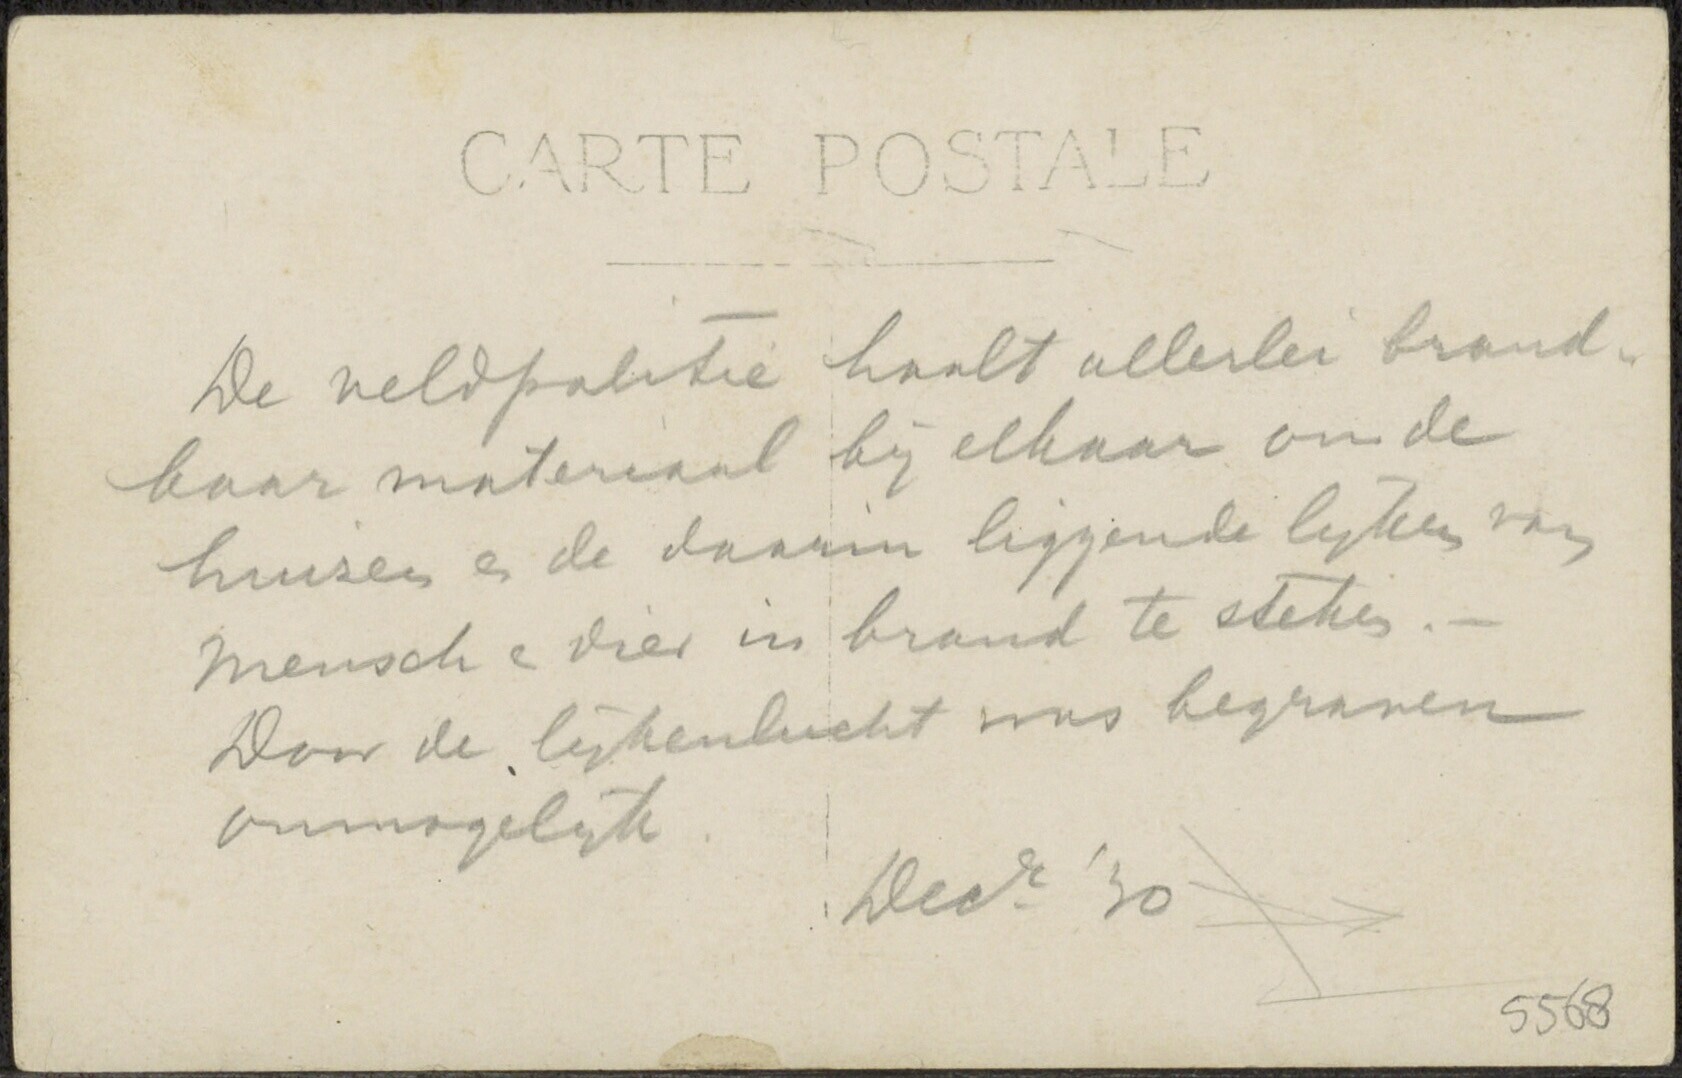 CARTE POSTALE
De veldpolitie haalt allerlei brand-
baar materiaal bij elkaar om de
huizen en de daarin liggende lijken van
mensch en dier in brand te steken. —
Door de lijkenlucht was begraven
onmogelijk.
Decr. '30
5568